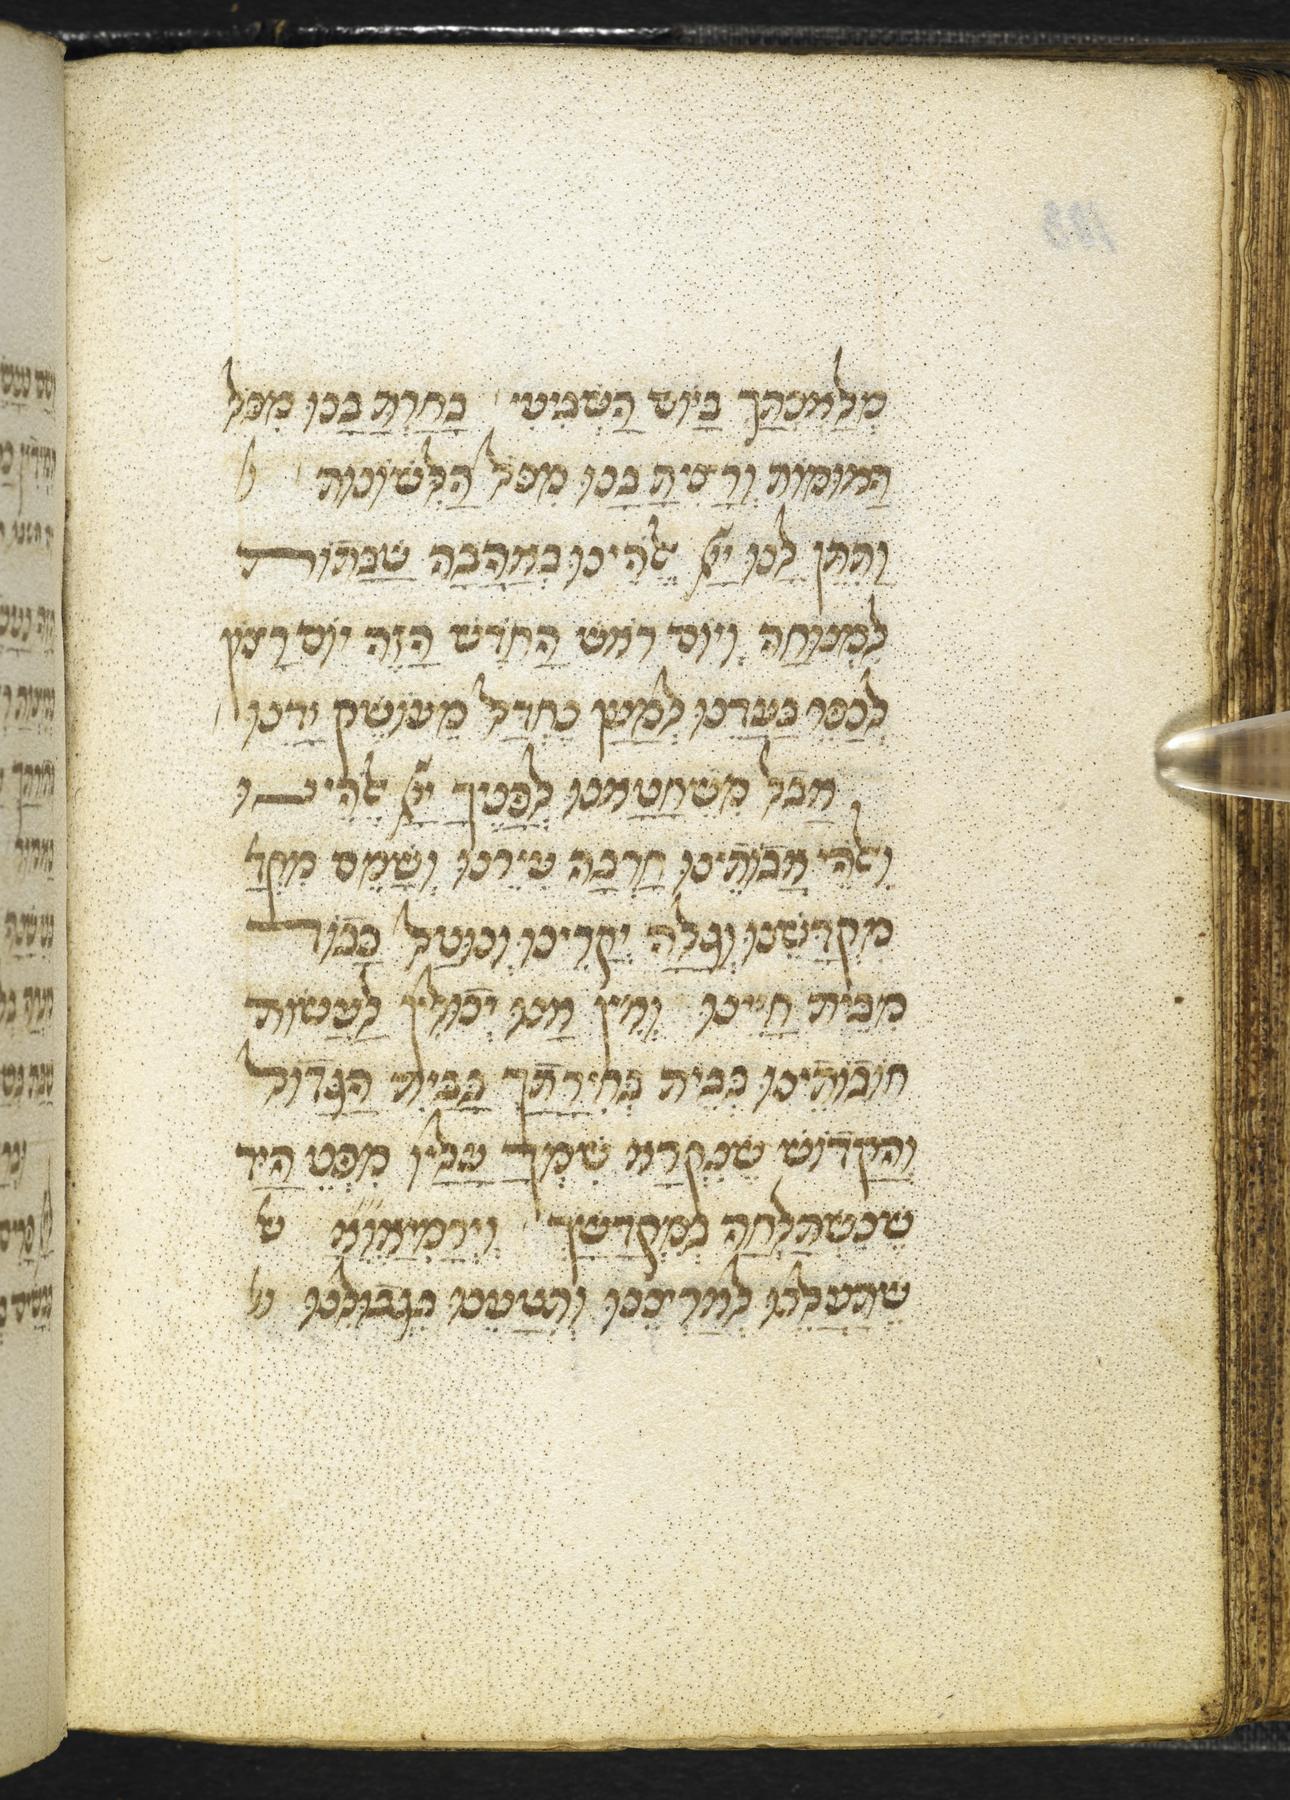 מְלַאכתָּךְ בַּיּוֹם הַשְּׁבִיעִי בָּחַרְתָּ בָּנוּ מִכָּל
הָאוּמּוֹת וְרָצִיתָ בָנוּ מִכָּל הַלְּשׁוֹנוֹת
וַתִּתֵּן לָנוּ יְיָ אֱלֹהֵינוּ בְאַהֲבָה שַׁבָּתוֹת
לִמְנוּחָה וְיוֹם רֹאשׁ הַחֹדֶשׁ הַזֶּה יוֹם רָצוֹן
לְכַפֵּר בַּעֲדֵנוּ לְמַעַן נֶחְדַּל מֵעוֹשֶׁק יָדֵנוּ
אֲבָל מִשֶּׁחָטָאנוּ לְפָנֶיךָ יְיָ אֱלֹהֵינוּ
וֵאלֹהֵי אֲבוֹתֵינוּ חָרְבָה עִירֵנוּ וְשָׁמֵם
מִקְדָּשֵׁנוּ וְגָלָה יְקָרֵינוּ וְנוּטַּל כָּבוֹד
מִבֵּית חַיֵּינוּ וְאֵין אָנוּ יְכוֹלִין לַעֲשׂוֹת
חוֹבוֹתֵינוּ בְּבֵית בְּחִירָתָךְ בַּבַּיִת הַגָּדוֹל
וְהַקָּדוֹשׁ שֶׁנִּקְרָא שִׁמְךָ עָלָיו מִפְּנֵי הַיָּד
שֶׁנִּשְׁתַּלְּחָה בְּמִקְדָּשֶׁךָ
שֶׁתַּעֲלֵנוּ לְאַרְצֵנוּ וְתִטָּעֵנוּ בִּגְבוּלֵנוּ